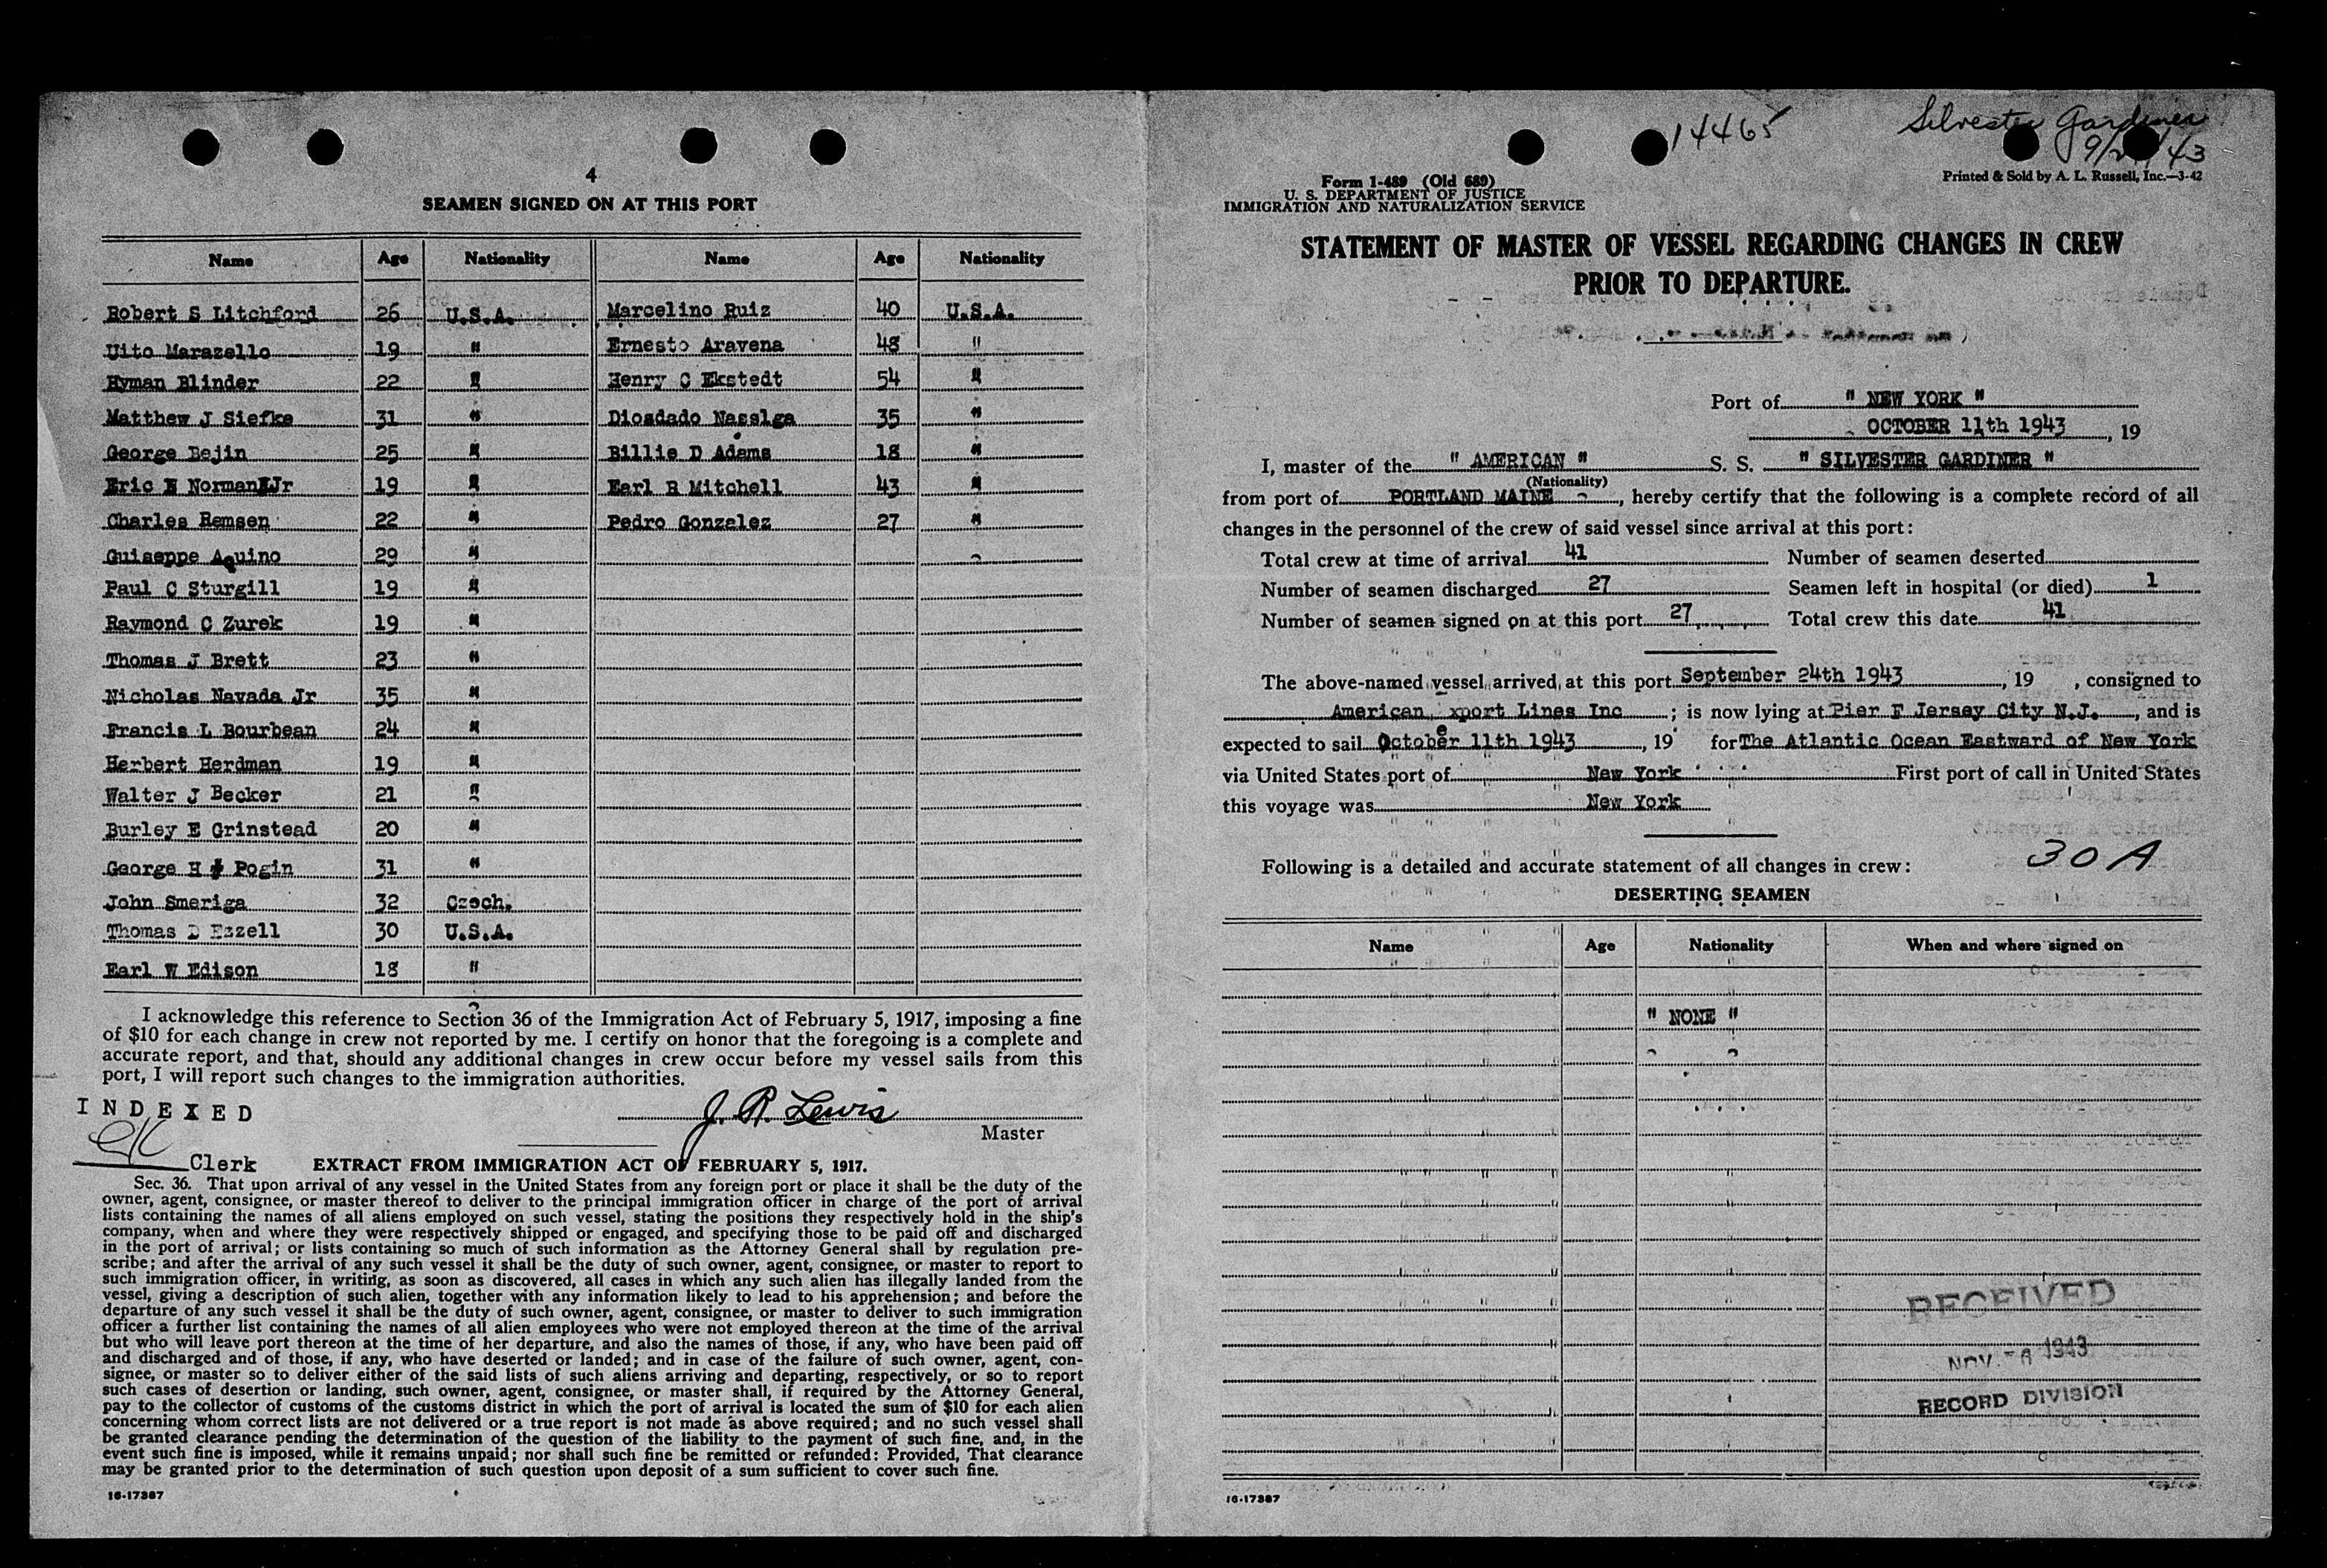 4
SEAMEN SIGNED ON AT THIS PORT
Name Age Nationality Name Age Nationality
Robert S Litchford 26 U.S.A. Marcelino Ruiz 40 U.S.A.
Uito Marazello 19 " Ernesto Aravena 48 "
Hyman Blinder 22 " Henry C Ekstedt 54 "
Matthew J Siefke 31 " Diosdado Nasslga 35 "
George Bejin 25 " Billie D Adams 18 "
Eric E Norman Jr 19 " Earl R Mitchell 43 "
Charles Remsen 22 " Pedro Gonzalez 27 "
Guiseppe Aquino 29 "
Paul C Sturgill 19 "
Raymond C Zurek 19 "
Thomas J Brett 23 "
Nicholas Navada Jr 35 "
Francis L Bourbean 24 "
Herbert Herdman 19 "
Walter J Becker 21 "
Burley E Grinstead 20 "
George H Pogin 31 "
John Smeriga 32 Czech.
Thomas D Ezzell 30 U.S.A.
Earl W Edison 18 "
I acknowledge this reference to Section 36 of the Immigration Act of February 5, 1917, imposing a fine
of $10 for each change in crew not reported by me. I certify on honor that the foregoing is a complete and
accurate report, and that, should any additional changes in crew occur before my vessel sails from this
port, I will report such changes to the immigration authorities.
INDEXED
J. R. Lewis
Master
Clerk
EXTRACT FROM IMMIGRATION ACT OF FEBRUARY 5, 1917.
Sec. 36. That upon arrival of any vessel in the United States from any foreign port or place it shall be the duty of the
owner, agent, consignee, or master thereof to deliver to the principal immigration officer in charge of the port of arrival
lists containing the names of all aliens employed on such vessel, stating the positions they respectively hold in the ship's
company, when and where they were respectively shipped or engaged, and specifying those to be paid off and discharged
in the port of arrival; or lists containing so much of such information as the Attorney General shall by regulation pre-
scribe; and after the arrival of any such vessel it shall be the duty of such owner, agent, consignee, or master to report to
such immigration officer, in writing, as soon as discovered, all cases in which any such alien has illegally landed from the
vessel, giving a description of such alien, together with any information likely to lead to his apprehension; and before the
departure of any such vessel it shall be the duty of such owner, agent, consignee, or master to deliver to such immigration
officer a further list containing the names of all alien employees who were not employed thereon at the time of the arrival
but who will leave port thereon at the time of her departure, and also the names of those, if any, who have been paid off
and discharged and of those, if any, who have deserted or landed; and in case of the failure of such owner, agent, con-
signee, or master so to deliver either of the said lists of such aliens arriving and departing, respectively, or so to report
such cases of desertion or landing, such owner, agent, consignee, or master shall, if required by the Attorney General,
pay to the collector of customs of the customs district in which the port of arrival is located the sum of $10 for each alien
concerning whom correct lists are not delivered or a true report is not made as above required; and no such vessel shall
be granted clearance pending the determination of the question of the liability to the payment of such fine, and, in the
event such fine is imposed, while it remains unpaid; nor shall such fine be remitted or refunded: Provided, That clearance
may be granted prior to the determination of such question upon deposit of a sum sufficient to cover such fine.
16-17387
14465
Silvester Gardiner
Form I-489 (Old 689)
U. S. DEPARTMENT OF JUSTICE
IMMIGRATION AND NATURALIZATION SERVICE
Printed & Sold by A. L. Russell, Inc.—3-42
STATEMENT OF MASTER OF VESSEL REGARDING CHANGES IN CREW
PRIOR TO DEPARTURE.
Port of " NEW YORK "
OCTOBER 11th 1943 , 19
I, master of the " AMERICAN " S. S. " SILVESTER GARDINER "
(Nationality)
from port of PORTLAND MAINE , hereby certify that the following is a complete record of all
changes in the personnel of the crew of said vessel since arrival at this port:
Total crew at time of arrival 41 Number of seamen deserted
Number of seamen discharged 27 Seamen left in hospital (or died) 1
Number of seamen signed on at this port 27 Total crew this date 41
The above-named vessel arrived at this port September 24th 1943 , 19 , consigned to
American export Lines Inc ; is now lying at Pier F Jersey City N.J. , and is
expected to sail October 11th 1943 , 19 for The Atlantic Ocean Eastward of New York
via United States port of New York First port of call in United States
this voyage was New York
Following is a detailed and accurate statement of all changes in crew: 30 A
DESERTING SEAMEN
Name Age Nationality When and where signed on
" NONE "
RECEIVED
NOV 1943
RECORD DIVISION
16-17387